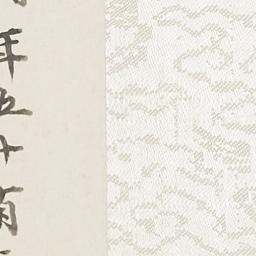 年五十有